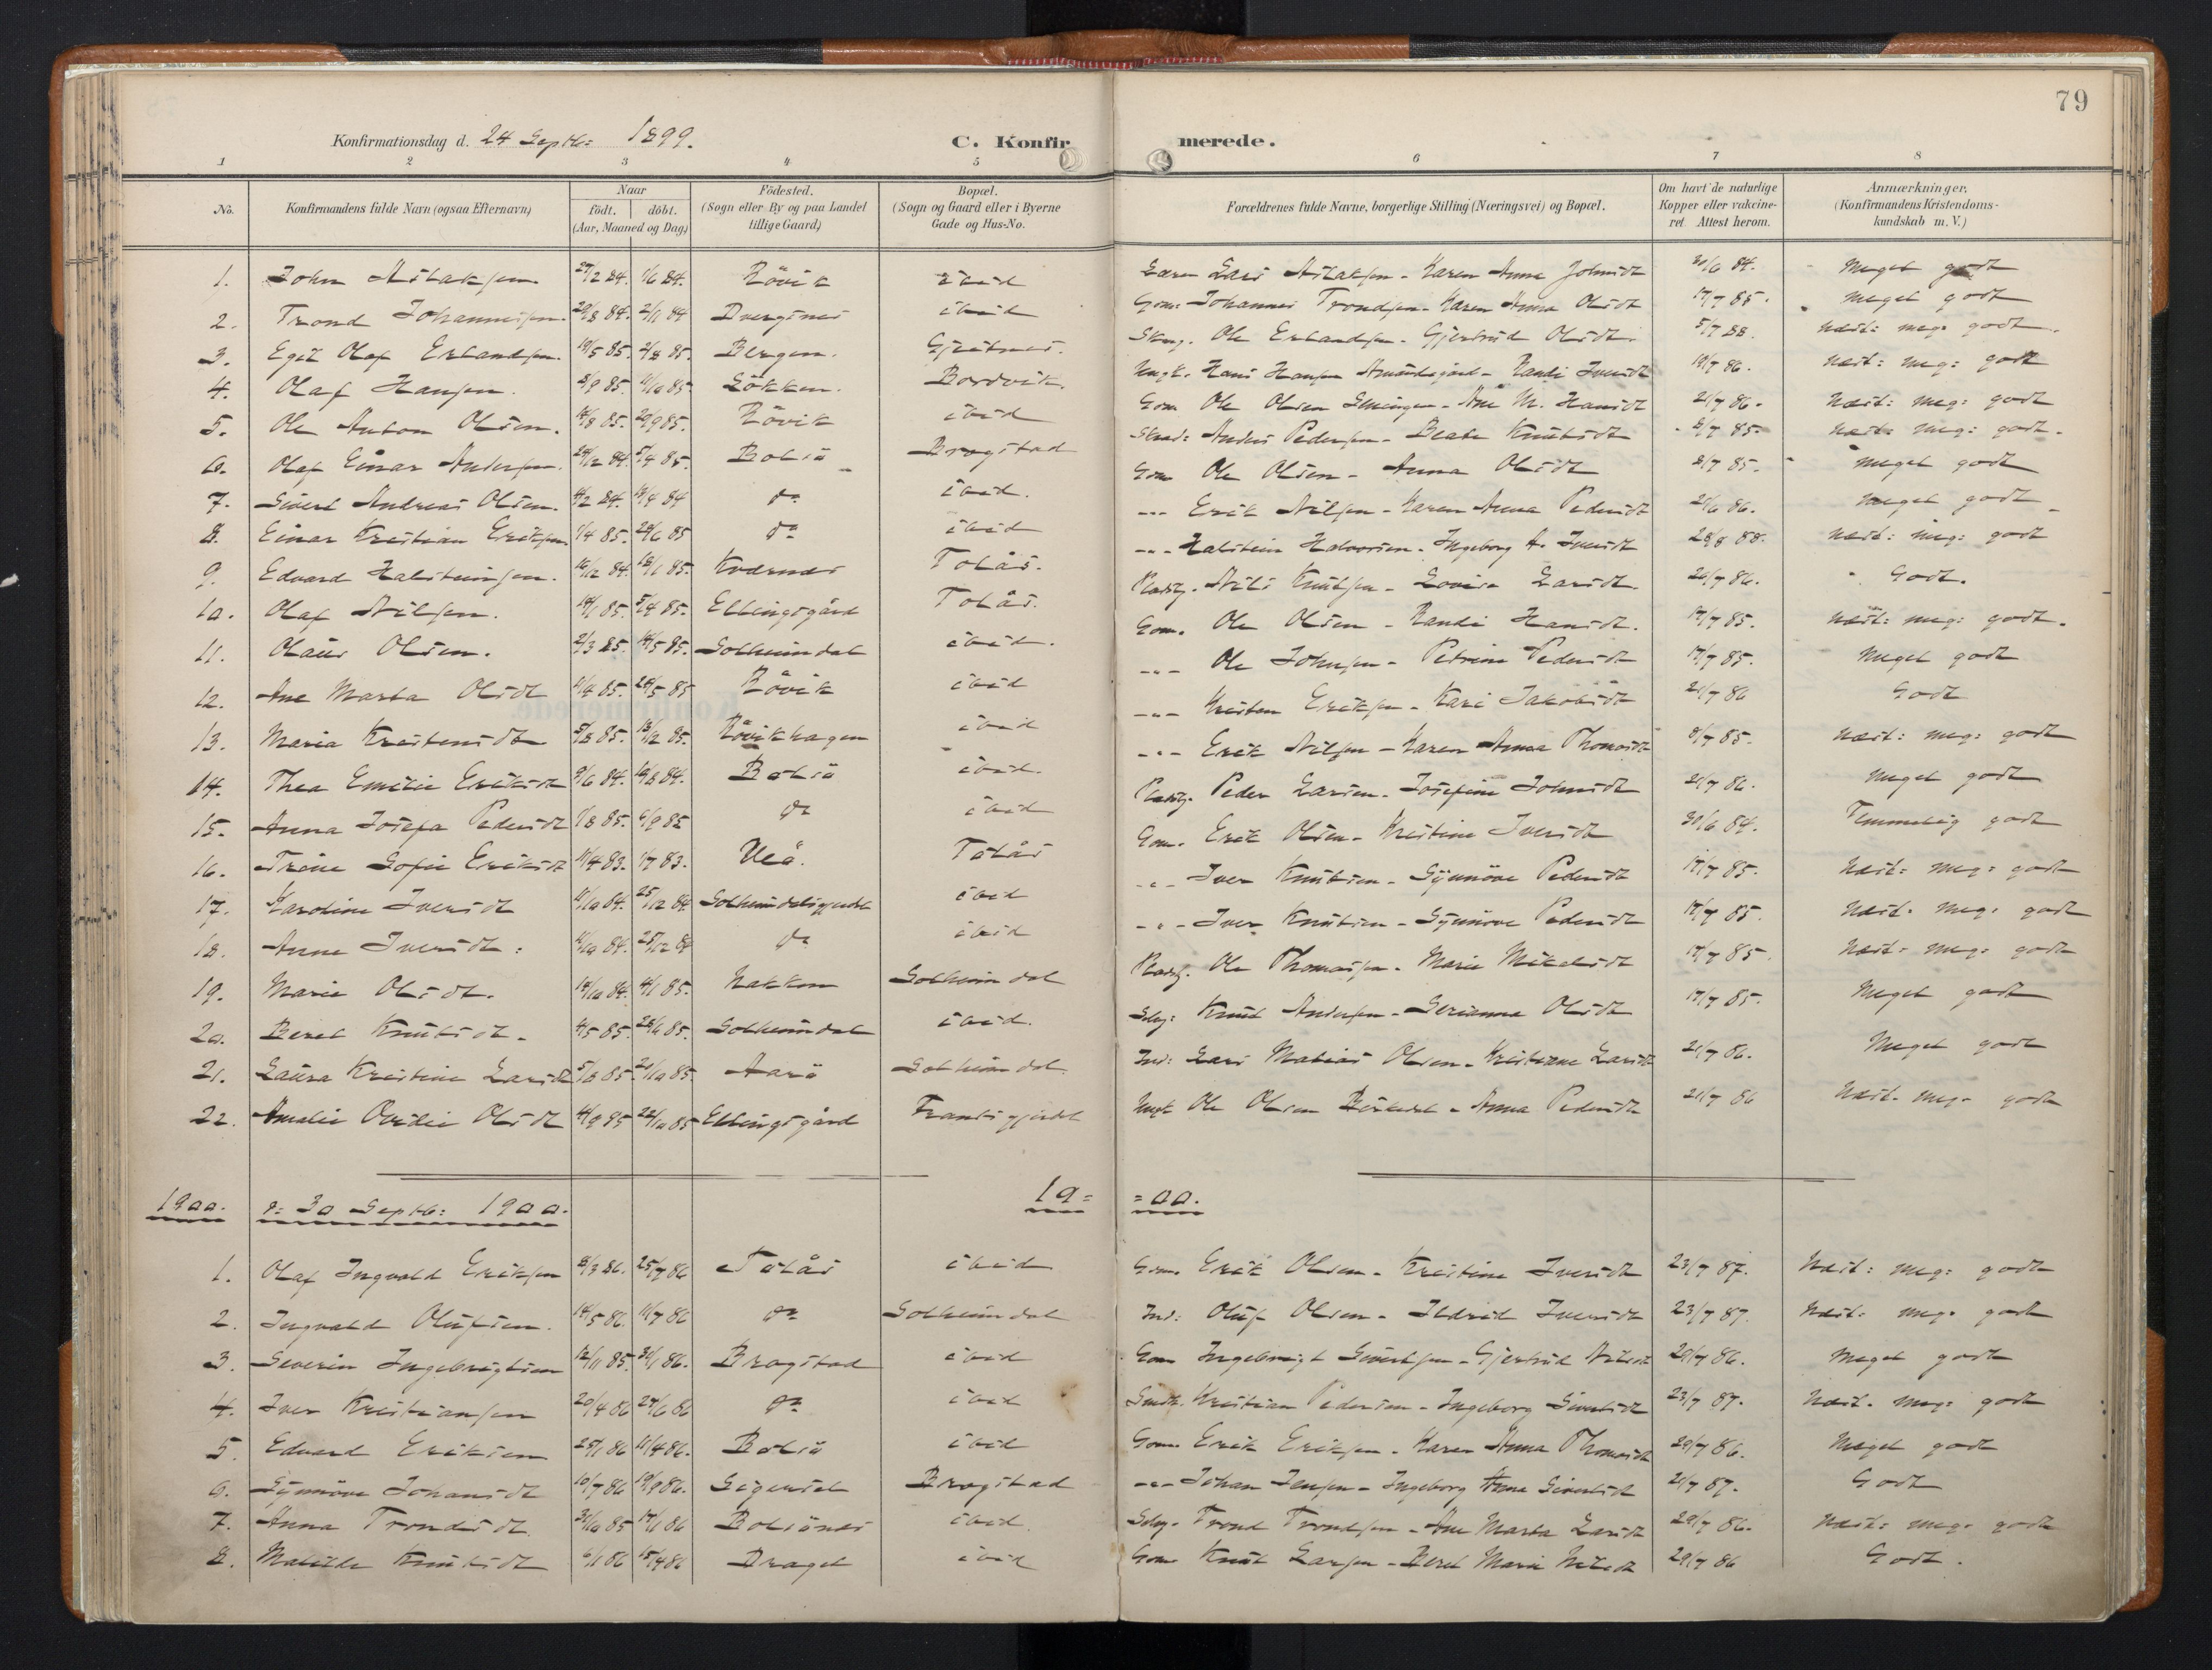 79
Konfirmationsdag d. 24 Septbr: 1899. C. Konfirmerede.
1 2 3 4 5 6 7 8
No. Konfirmandens fulde Navn (ogsaa Efternavn) Naar födt. döbt. (Aar, Maaned og Dag) Födested. (Sogn eller By og paa Landet tillige Gaard) Bopæl. (Sogn og Gaard eller i Byerne Gade og Hus-No. Forældrenes fulde Navne, borgerlige Stilling (Næringsvei) og Bopæl. Om havt de naturlige Kopper eller vakcineret. Attest herom. Anmærkninger. (Konfirmandens Kristendomskundskab m. V.)
1. John Aslaksen 27/2 84. 1/6 84. Rövik ibid Lars Aslaksen - Karen Anna Johnsdt 30/6 84. Meget godt
2. Trond Johannessen. 29/8 84. 2/11 84 Dvergsnes ibid Gom: Johannes Trondsen - Karen Anna Olsdt 17/7 85. Meget godt
3. Egil Olaf Erlandsen. 19/5 85. 2/8 85. Bergen. Gjeitnes. Ole Erlandsen - Gjertrud Olsdt. 5/7 88. Næst: meg: godt.
4. Olaf Hansen. 8/9 85. 11/10 85. Lökken. Bordvik. Ungk. Hans Hansen - Randi Iversdt 19/7 86. Næst: meg: godt
5. Ole Anton Olsen. 14/8 85. 20/9 85. Rövik ibid Gom Ole Olsen - Ane M. Hansdt 21/7 86. Næst: meg: godt
6. Olaf Einar Andersen. 29/12 84. 5/4 85. Bolsö Dragstad Anders Pedersen - Beate Knutsdt 2/7 85. Næst: meg: godt.
7. Sivert Andreas Olsen. 4/2 84. 13/4 84 do ibid. Gom Ole Olsen - Anna Olsdt 2/7 85. Meget godt
8. Einar Kristian Eriksen 1/4 85. 29/6 85 do ibid -"- Erik Nilsen - Karen Anna Pedersdt 21/6 86. Meget godt
9. Edvard Halsteinsen. 16/12 84. 18/1 85. Kvernes Tolås. -"- Halstein Halvorsen - Ingeborg A. Iversdt 28/8 88. Næst: meg: godt
10. Olaf Nilsen. 14/1 85. 5/4 85. Ellingsgård Tolås. Pladsg. Nils Knutsen - Lovise Larsdt 26/7 86. Godt.
11. Olaus Olsen. 2/3 85. 14/5 85. Solheimdal ibid. Gom. Ole Olsen - Randi Hansdt. 17/7 85. Næst: meg: godt.
12. Ane Marta Olsdt 11/4 85. 24/5 85 Rövik ibid -"- Ole Johnsen - Petrine Pedersdt 17/7 85. Meget godt
13. Maria Kristensdt 5/8 85. 13/12 85. Rövikhagen ibid -"- Kristen Eriksen - Kari Jakobsdt 21/7 86 Godt
14. Thea Emilie Eriksdt 9/6 84. 10/8 84. Bolsö ibid. -"- Erik Nilsen - Karen Anna Thomasdt 8/7 85. Næst: meg: godt
15. Anna Josefa Pedersdt 7/8 85. 6/9 85 do ibid Pladsg. Peder Larsen - Josefine Johnsdt 21/7 86. Meget godt
16. Trine Sofie Eriksdt 11/4 83. 1/7 83. Veö. Tolås Gom. Erik Olsen - Kristine Iversdt 30/6 84. Temmelig godt
17. Karoline Iversdt 11/10 84. 25/12 84 ibid -"- Iver Knutsen - Synnöve Pedersdt 17/7 85. Næst: meg: godt
18. Anne Iversdt. 11/10 84. 25/12 84 do ibid -"- Iver Knutsen - Synnöve Pedersdt 17/7 85. Næst: meg: godt
19. Marie Olsdt. 14/10 84. 4/1 85. Nakken Solheimdal Pladsg. Ole Thomassen - Marie Mikalsdt 17/7 85. Næst: meg: godt
20. Beret Knutsdt. 4/5 85. Solheimdal ibid. Selvg: Knut Andersen - Serianna Olsdt 17/7 85. Meget godt
21. Laura Kristine Larsdt 5/8 85. 21/10 85. Aarö Solheimdal Ind: Lars Matias Olsen - Kristiane Larsdt 21/7 86. Meget godt
22. Amalie Ovidie Olsdt 4/9 85 22/10 85 Ellingsgård Fransgjerdet Ungk Ole Olsen - Anna Pedersdt 21/7 86 Næst. meg. godt
1900. d: 30 Septb: 1900. 19= =00.
1. Olaf Ingvald Eriksen 8/3 86. 25/7 86 Tolås ibid Gom. Erik Olsen - Kristine Iversdt 23/7 87. Næst: meg: godt
2. Ingvald Olufsen. 14/5 86. 11/7 86 do Solheimdal Ind: Oluf Olsen - Ildrid Iversdt 23/7 87. Næst: meg: godt
3. Severin Ingebrigtsen 12/11 85. 31/1 86. Dragstad ibid Gom Ingebrigt Sivertsen - Gjertrud Nilsdt 29/7 86. Meget godt
4. Iver Kristiansen 20/4 86 27/6 86 do ibid Smith. Kristian Pedersen - Ingeborg Sivertsdt 23/7 87. Næst. meg: godt
5. Edvard Eriksen 25/1 86 11/4 86. Bolsö ibid Gom. Erik Eriksen - Karen Anna Thomasdt 29/7 86. Meget godt
6. Synnöve Johansdt 10/7 86 19/9 86. Sigerset Dragstad -"- Johan Jensen - Ingeborg Anna Sivertsdt 21/7 87. Godt
7. Anna Trondsdt. 31/10 85 17/1 86 Bolsönes ibid. Selvg. Trond Trondsen - Ane Marta Larsdt 29/7 86. Næst: meg. godt
8. Matilde Knutsdt 6/1 86 15/4 86 Draget ibid Gom Knut Larsen - Beret Marie Nilsdt 29/7 86 Godt.